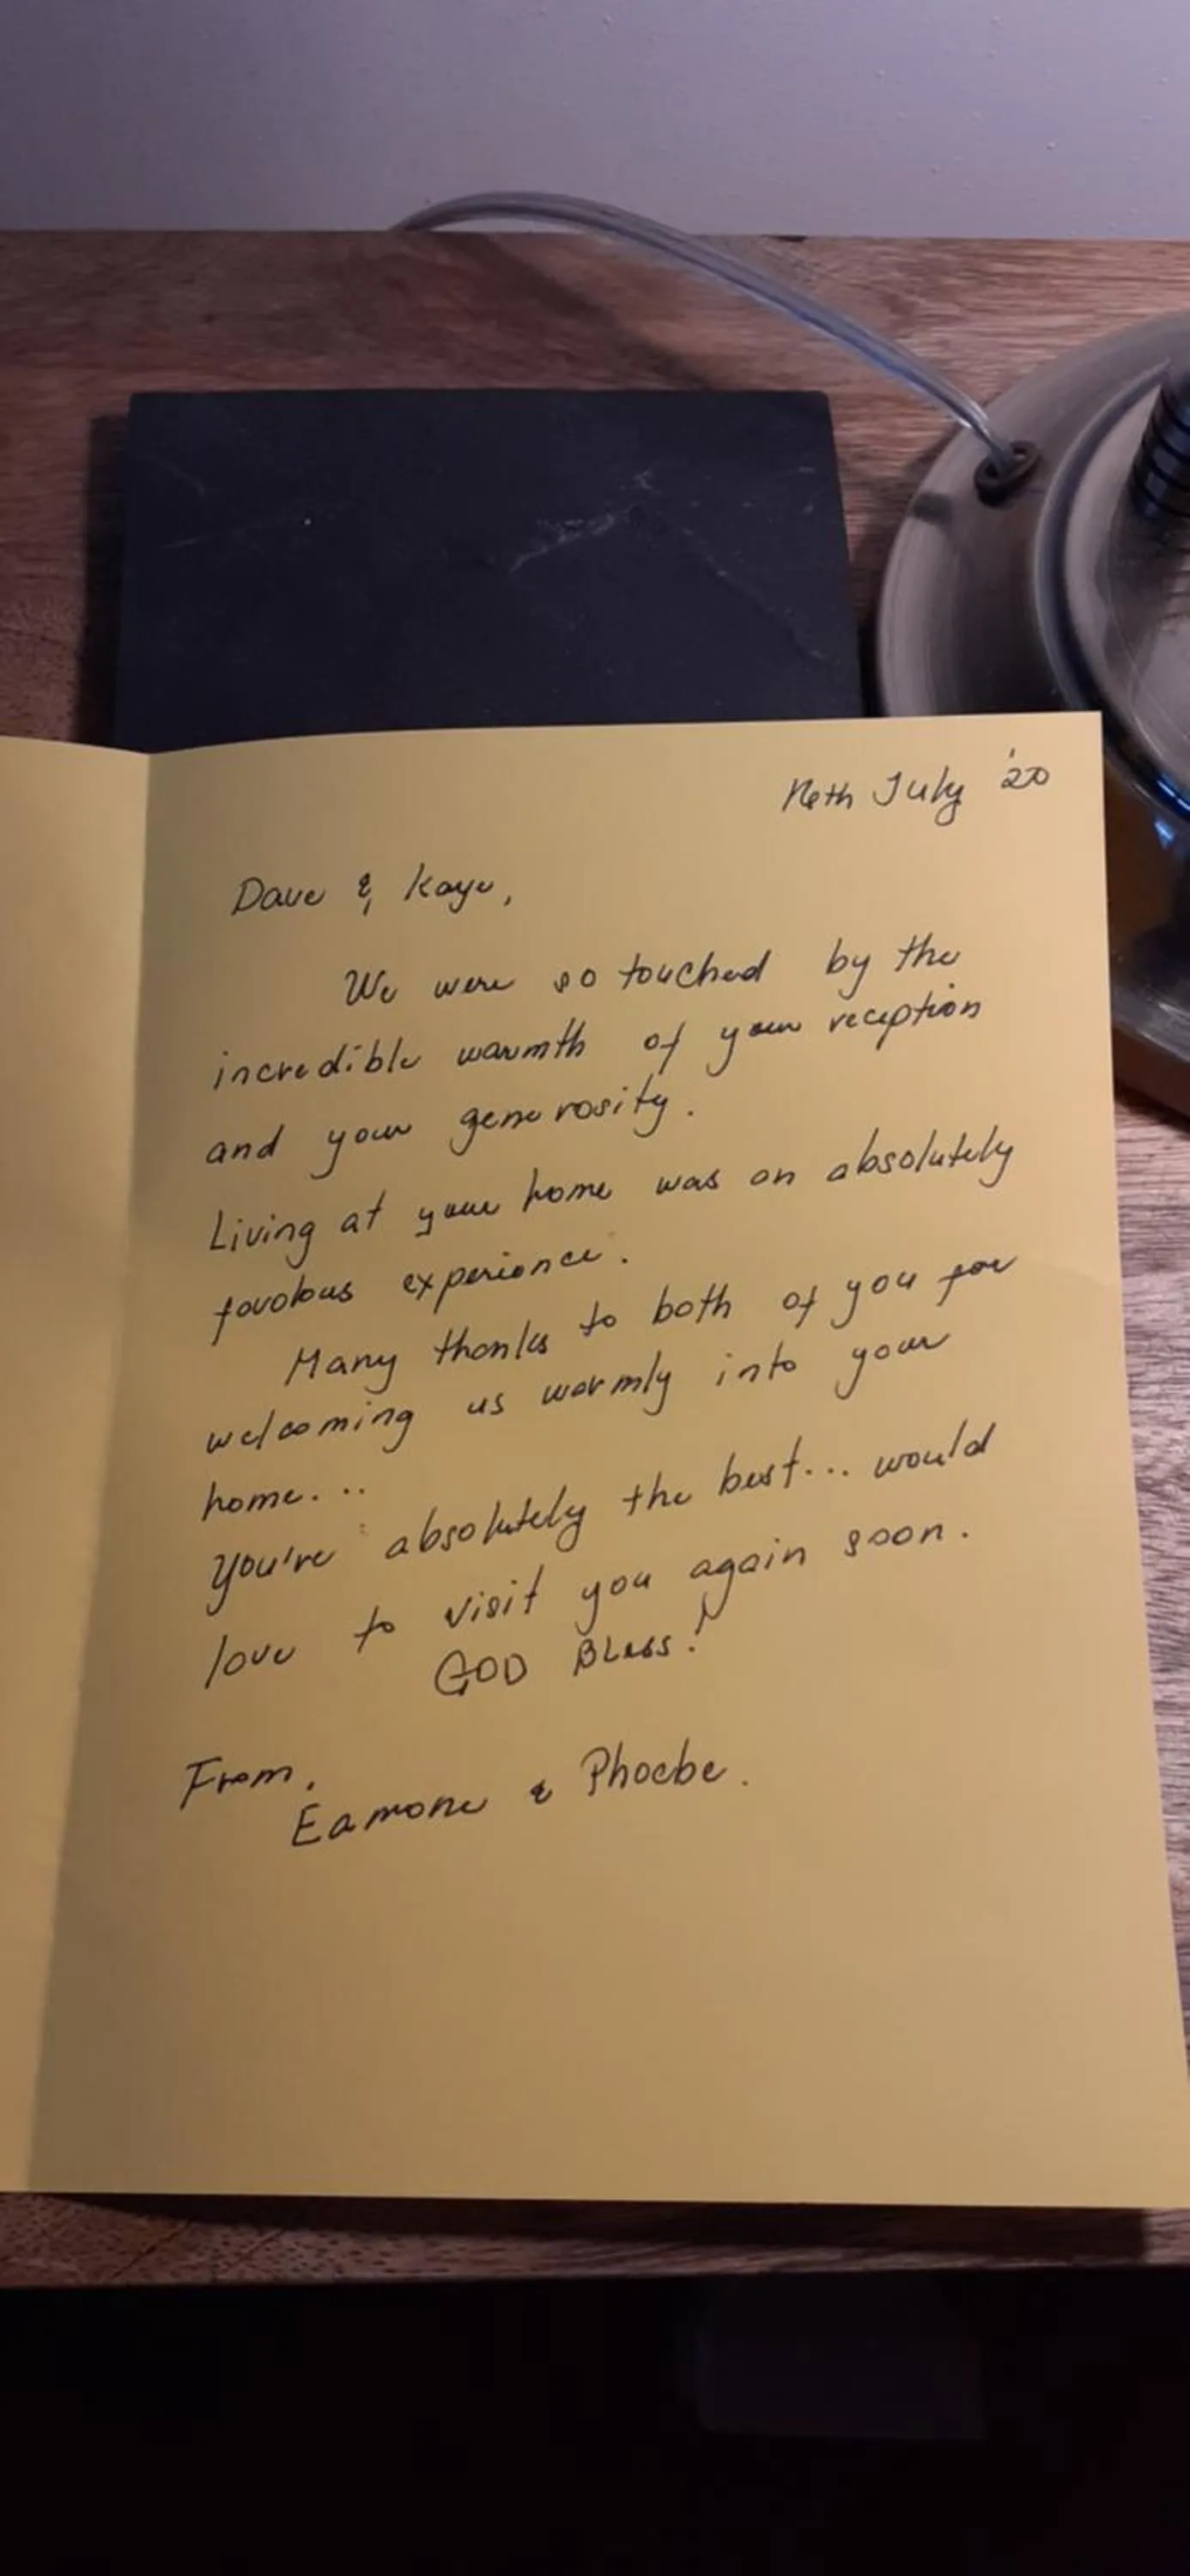 July '20
Dave & Kaye,
We were so touched by the
incredible warmth of your reception
and your generosity.
Living at your home was an absolutely
favolous experience.
Many thanks to both of you for
welcoming us warmly into your
home...
You're absolutely the best... would
love to visit you again soon.
GOD Bless!
From,
Eamone & Phoebe.